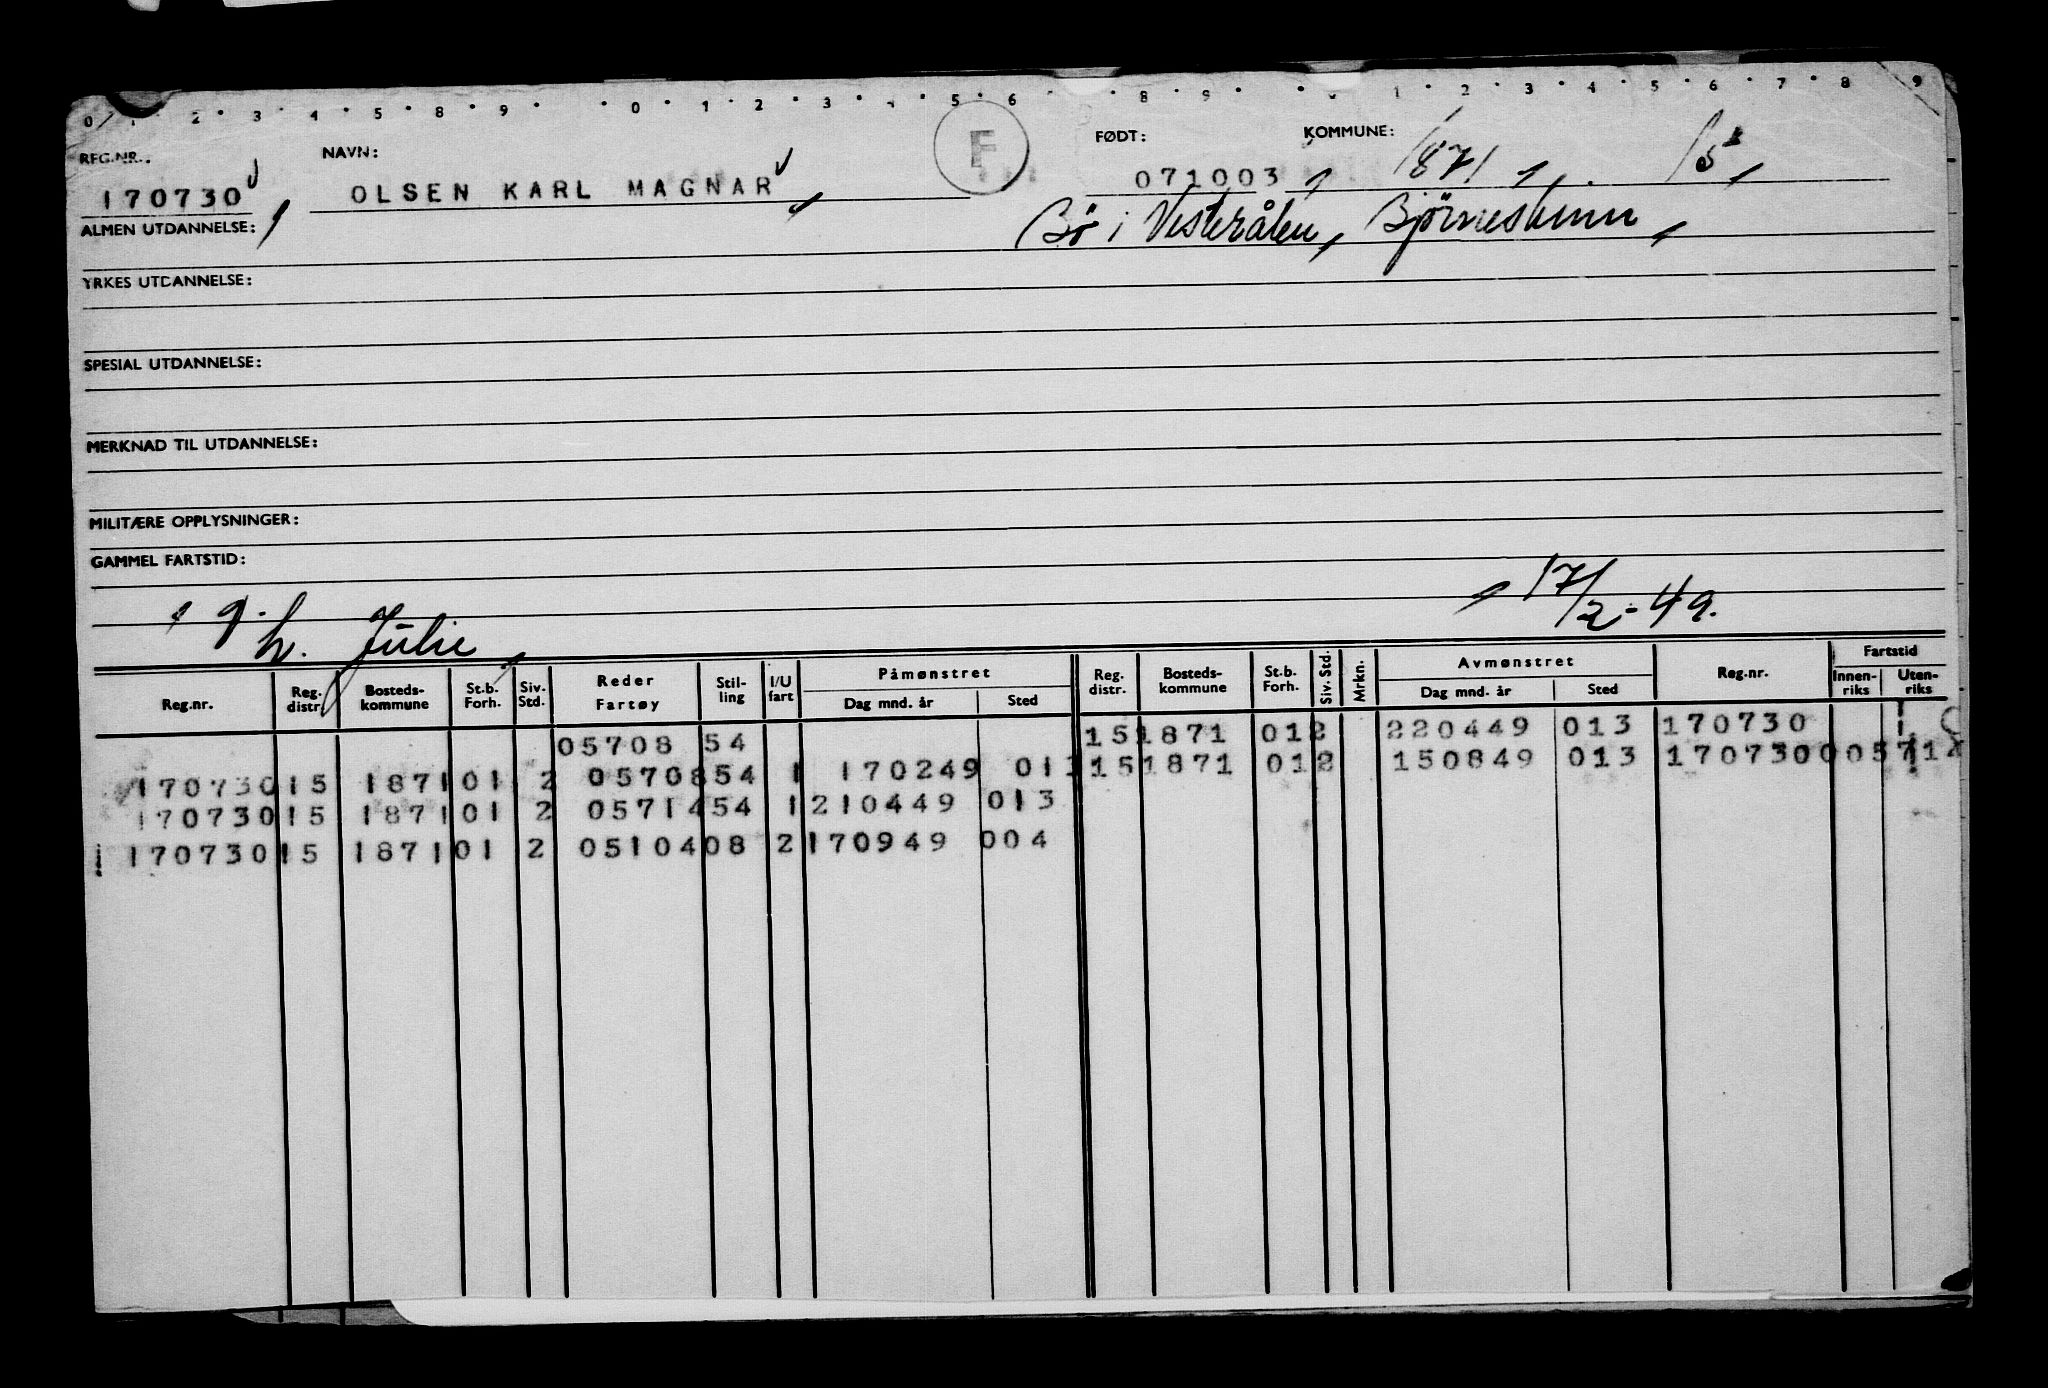 0 1 2 3 4 5 8 9 0 1 2 3 4 5 6 8 9 1 2 3 4 5 6 7 8 9
REG.NR.: NAVN: F FØDT: KOMMUNE:
170730 OLSEN KARL MAGNAR 071003 1871 15
ALMEN UTDANNELSE: Bø i Vesterålen, Bjørneskinn,
YRKES UTDANNELSE:
SPESIAL UTDANNELSE:
MERKNAD TIL UTDANNELSE:
MILITÆRE OPPLYSNINGER:
GAMMEL FARTSTID:
g. h. Julie, 17/2-49.
Reg.nr. Reg. distr. Bosteds-kommune St.b. Forh. Siv. Std. Reder Fartøy Stil-ling I/U fart Påmønstret Dag mnd. år Sted Reg. distr. Bosteds-kommune St.b. Forh. Siv. Std. Mrkn. Avmønstret Dag mnd. år Sted Reg.nr. Fartstid Innen-riks Uten-riks
05708 54 15 1871 01 2 220449 013 170730
170730 15 1871 01 2 05708 54 1 170249 013 15 1871 01 2 150849 013 170730 005 71
170730 15 1871 01 2 05714 54 1 210449 013
170730 15 1871 01 2 05104 08 2 170949 004